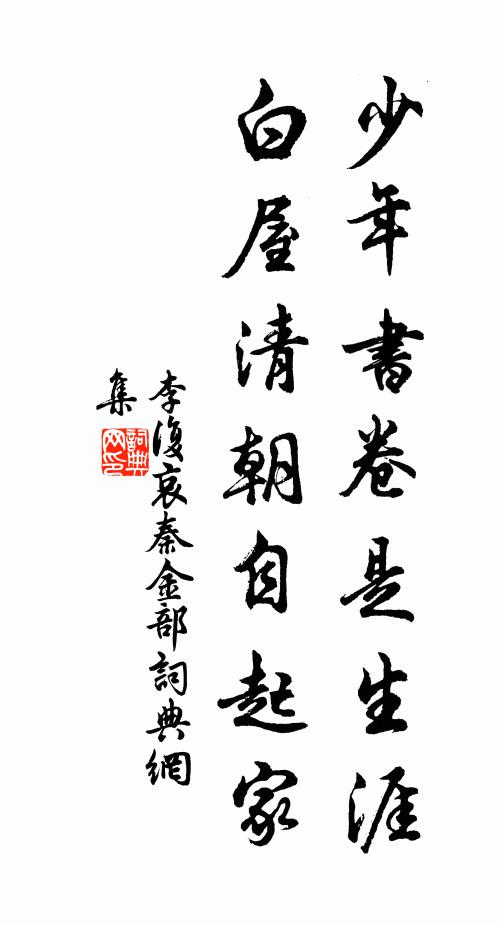 少年書卷是生涯
白屋清朝自起家
李復哀秦金部詞典網
集
詞典
网印